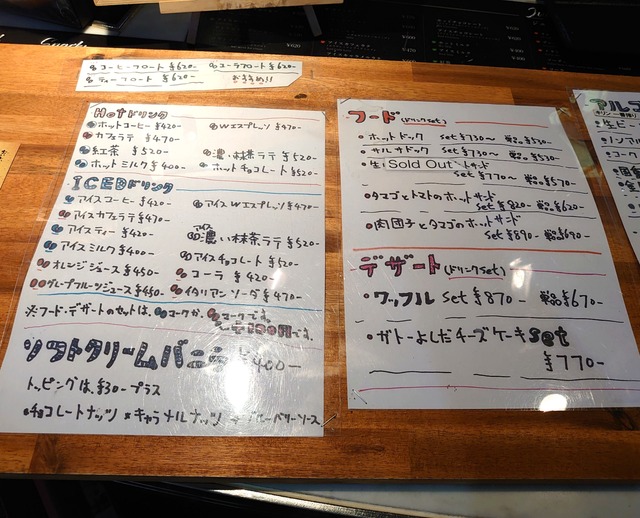 コーヒーフロート ¥620- コーラフロート ¥620-
ティーフロート ¥620- おすすめ!!
Hotドリンク
ホットコーヒー ¥420- Wエスプレッソ ¥470-
カフェラテ ¥470-
紅茶 ¥520- 濃い抹茶ラテ ¥520-
ホットミルク ¥400- ホットチョコレート ¥520-
ICEDドリンク
アイスコーヒー ¥420- アイスWエスプレッソ ¥470-
アイスカフェラテ ¥470-
アイスティー ¥420- アイス濃い抹茶ラテ ¥520-
アイスミルク ¥400- アイスチョコレート ¥520-
オレンジジュース ¥450- コーラ ¥420-
グレープフルーツジュース ¥450- イタリアンソーダ ¥470-
※フード・デザートのセットは、マークか、マークです。
+100円です。
ソフトクリームバニラ ¥400-
トッピングは、¥30-プラス
チョコレートナッツ キャラメルナッツ ブルーベリーソース
フード(ドリンクset)
・ホットドック set ¥730- 単品 ¥530-
・サルサドック set ¥730- 単品 ¥530-
・生 Sold Out サンド
set ¥770- 単品 ¥570-
・タマゴとトマトのホットサンド
set ¥820- 単品 ¥620-
・肉団子とタマゴのホットサンド
set ¥890- 単品 ¥690-
デザート(ドリンクset)
・ワッフル set ¥870- 単品 ¥670-
・ガトーよしだチーズケーキset
¥770-
アルコ
キリン 一番搾り
・生ビー